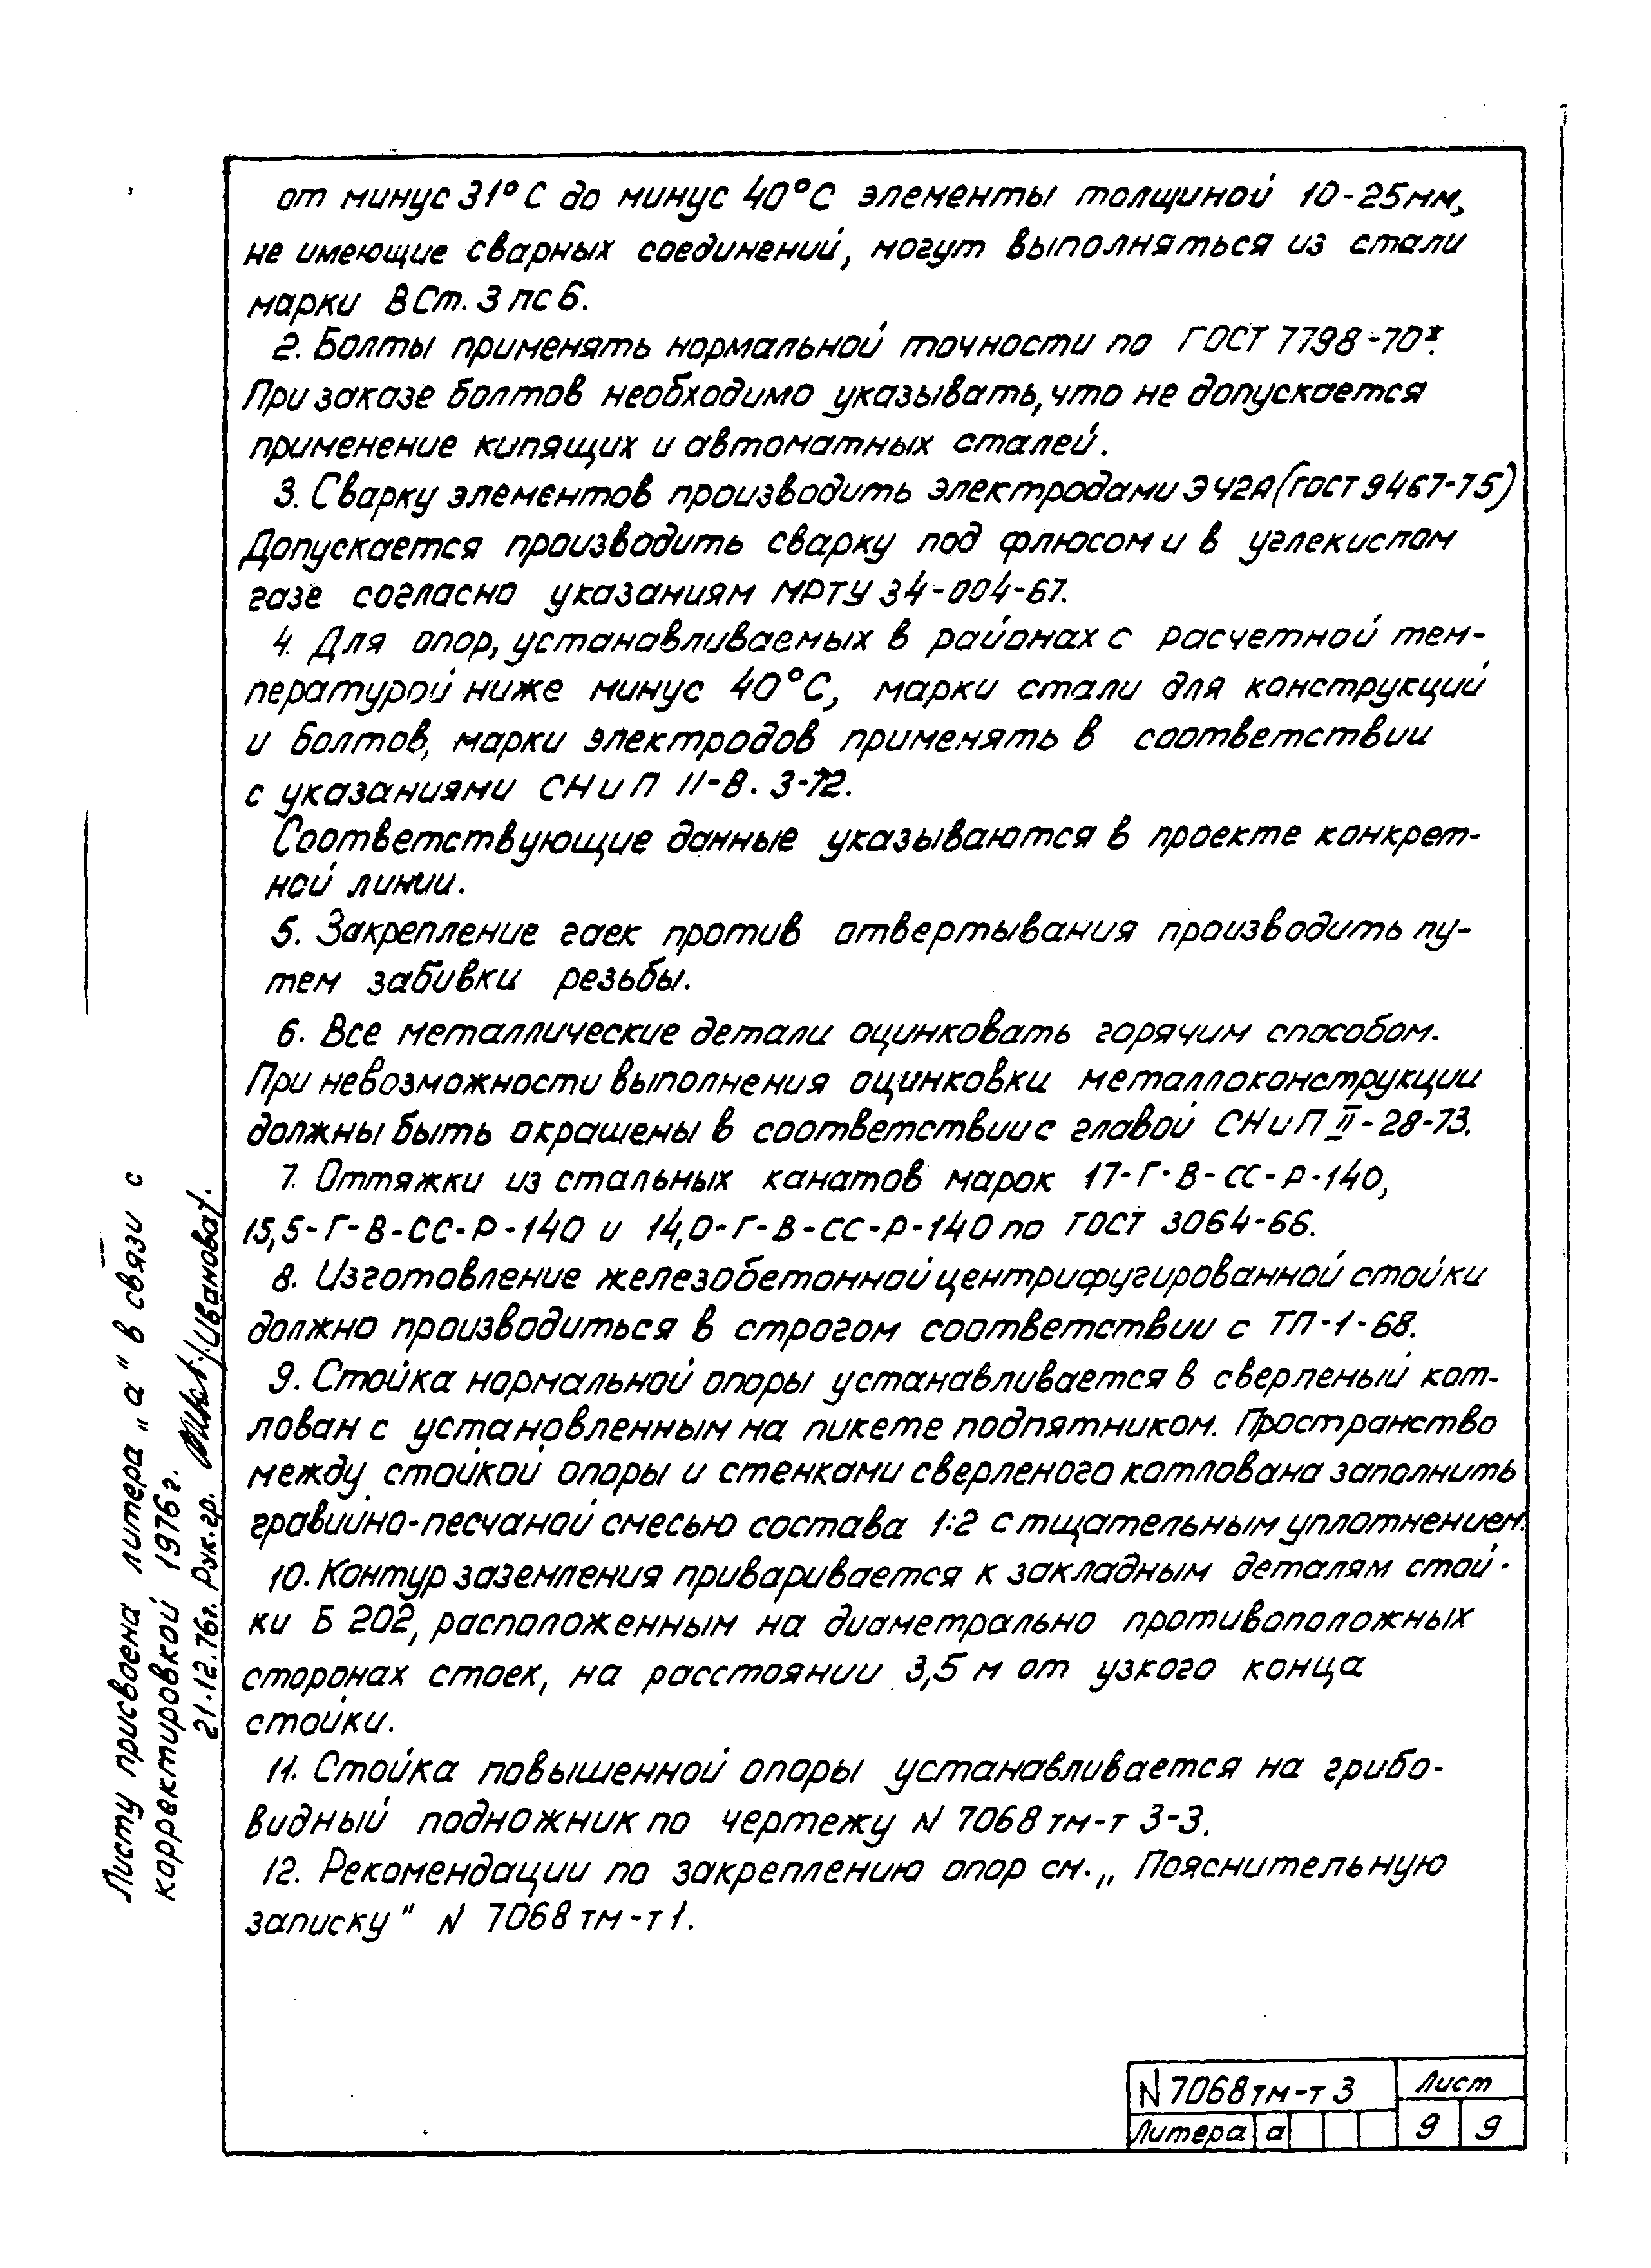 от минус 31°С до минус 40°С элементы толщиной 10-25мм,
не имеющие сварных соединений, могут выполняться из стали
марки ВСт.3пс6.
2. Болты применять нормальной точности по ГОСТ 7798-70*.
При заказе болтов необходимо указывать, что не допускается
применение кипящих и автоматных сталей.
3. Сварку элементов производить электродами Э42А (ГОСТ 9467-75)
Допускается производить сварку под флюсом и в углекислом
газе согласно указаниям МРТУ 34-004-67.
4. Для опор, устанавливаемых в районах с расчетной тем-
пературой ниже минус 40°С, марки стали для конструкций
и болтов, марки электродов применять в соответствии
с указаниями СНиП II-В.3-72.
Соответствующие данные указываются в проекте конкрет-
ной линии.
5. Закрепление гаек против отвертывания производить пу-
тем забивки резьбы.
6. Все металлические детали оцинковать горячим способом.
При невозможности выполнения оцинковки металлоконструкции
должны быть окрашены в соответствии с главой СНиП II-28-73.
7. Оттяжки из стальных канатов марок 17-Г-В-СС-Р-140,
15,5-Г-В-СС-Р-140 и 14,0-Г-В-СС-Р-140 по ГОСТ 3064-66.
8. Изготовление железобетонной центрифугированной стойки
должно производиться в строгом соответствии с ТП-1-68.
9. Стойка нормальной опоры устанавливается в сверленый кот-
лован с установленным на пикете подпятником. Пространство
между стойкой опоры и стенками сверленого котлована заполнить
гравийно-песчаной смесью состава 1:2 с тщательным уплотнением.
10. Контур заземления приваривается к закладным деталям стой-
ки Б 202, расположенным на диаметрально противоположных
сторонах стоек, на расстоянии 3,5 м от узкого конца
стойки.
11. Стойка повышенной опоры устанавливается на грибо-
видный подножник по чертежу N 7068тм-т 3-3.
12. Рекомендации по закреплению опор см. „Пояснительную
записку" N 7068тм-т1.
Листу присвоена литера „а" в связи с
корректировкой 1976г.
21.12.76г. Рук.гр. /Иванова/.
N 7068тм-т 3
Лист
Литера а
9 9